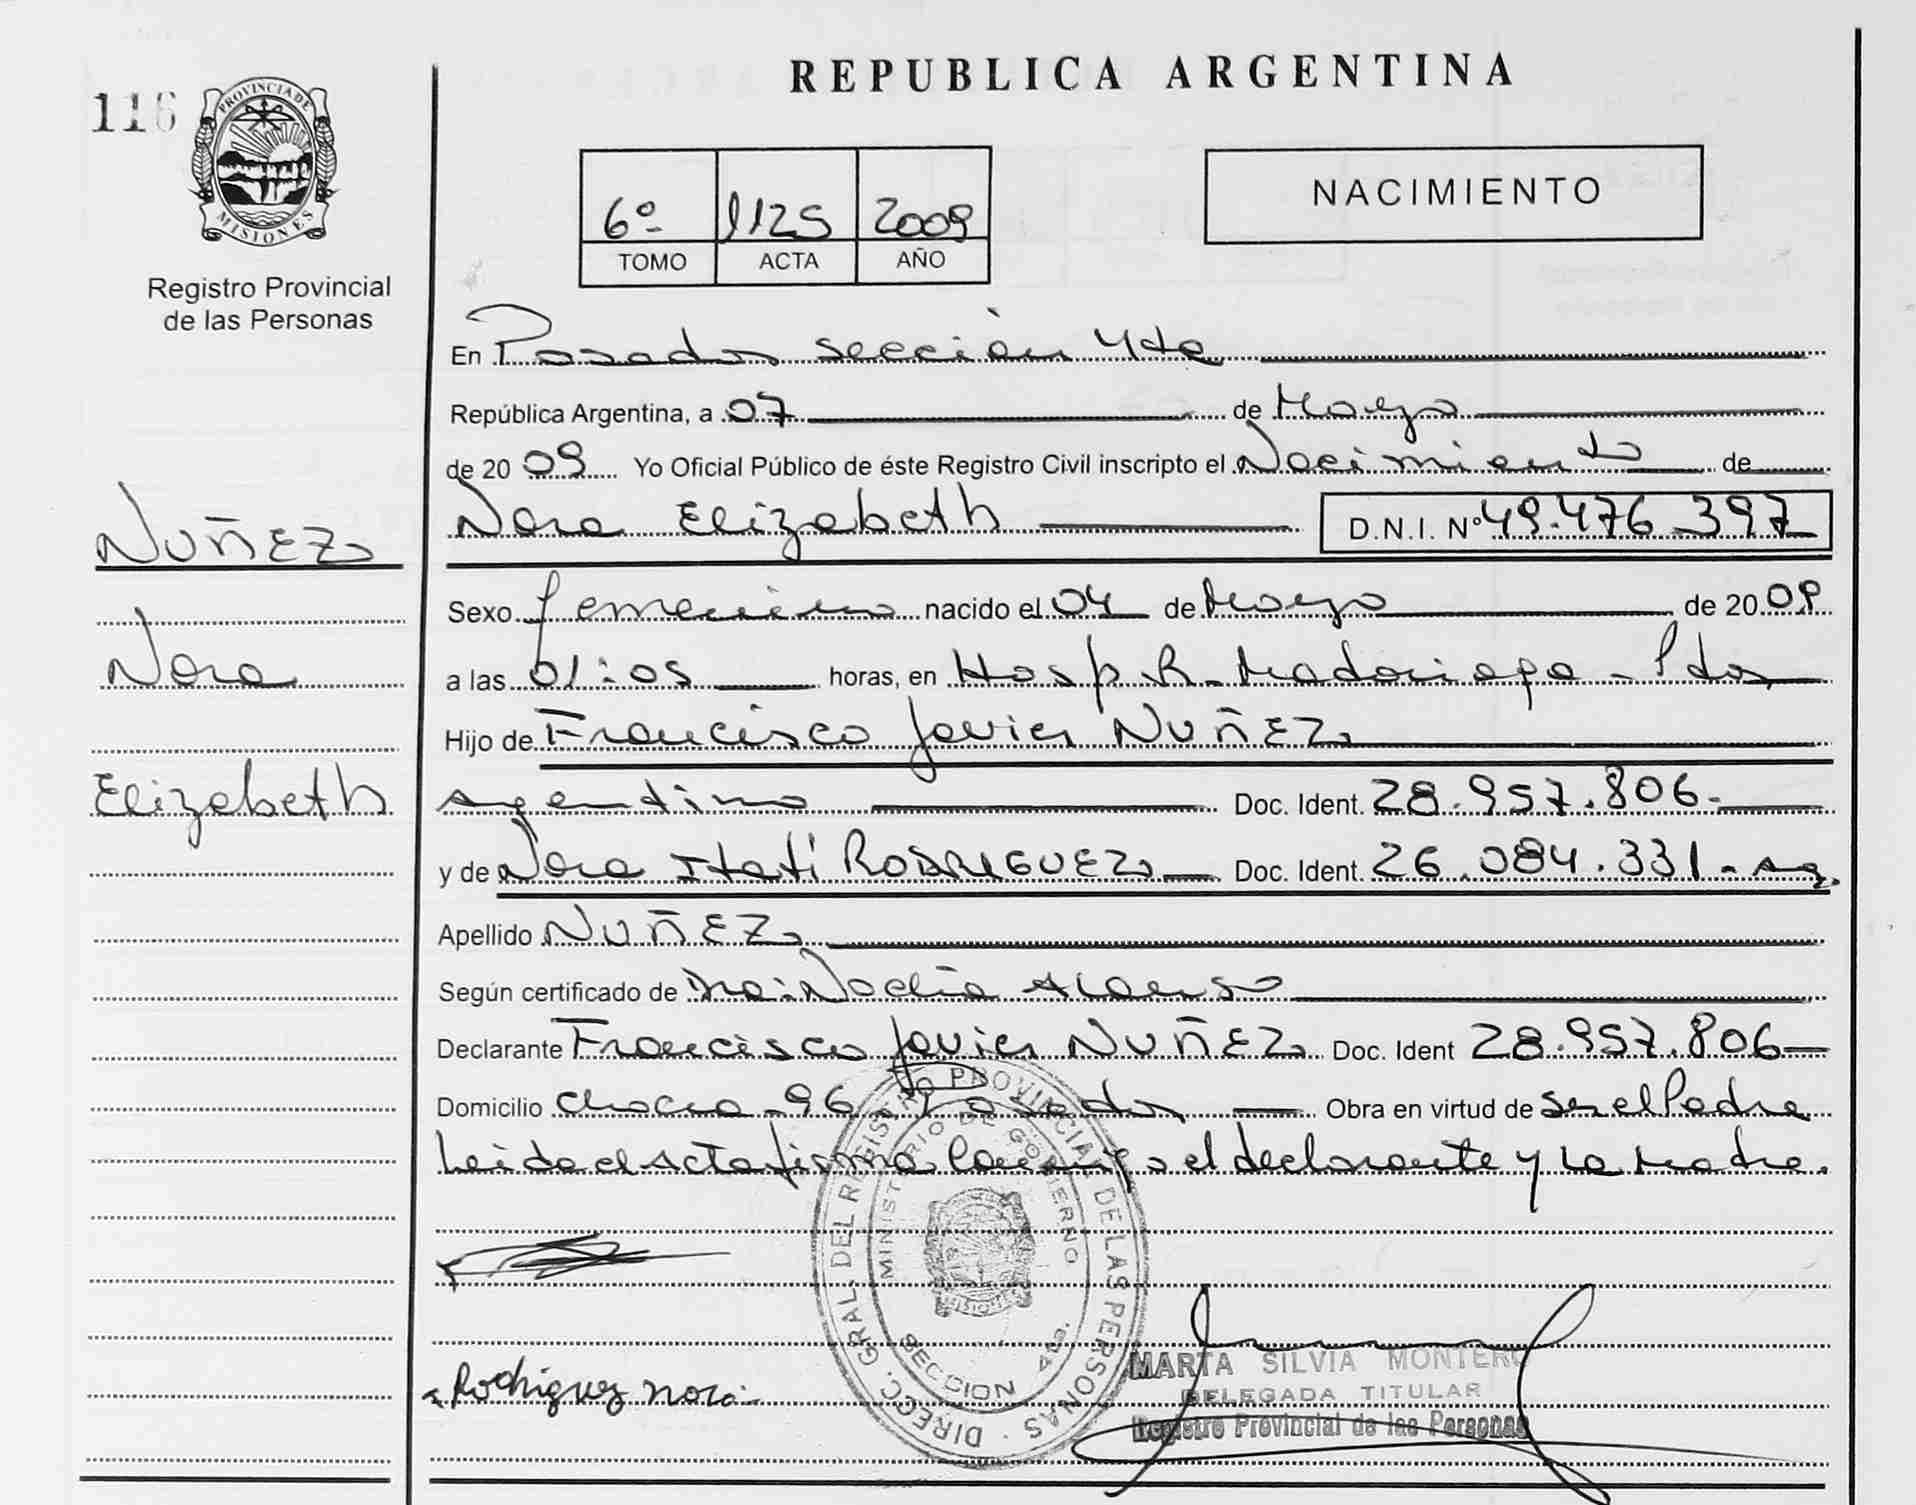 REPUBLICA ARGENTINA
116
PROVINCIA DE
MISIONES
Registro Provincial
de las Personas
NACIMIENTO
6º 1125 2009
TOMO ACTA AÑO
En Posadas sección 4ta
República Argentina, a 07 de Mayo
de 20 09 Yo Oficial Público de éste Registro Civil inscripto el Nacimiento de
Nora Elizabeth D.N.I. Nº 49.476.397
NUÑEZ
Nora
Elizabeth
Sexo femenino nacido el 04 de Mayo de 20 09
a las 01:05 horas, en Hosp. R. Madariaga - Pdas
Hijo de Francisco Javier NUÑEZ
argentino Doc. Ident. 28.957.806-
y de Nora Itatí RODRIGUEZ Doc. Ident. 26.084.331- arg.
Apellido NUÑEZ
Según certificado de Dra: Noelia Alonso
Declarante Francisco Javier NUÑEZ Doc. Ident 28.957.806
Domicilio chacra - 96 - Posadas Obra en virtud de ser el Padre
Leída el acta firma conmigo el declarante y la Madre.
DIRECC. GRAL. DEL REGISTRO PROVINCIAL DE LAS PERSONAS
MINISTERIO DE GOBIERNO
SECCION 4ta.
MISIONES
Rodriguez Nora
MARTA SILVIA MONTERO
DELEGADA TITULAR
Registro Provincial de las Personas